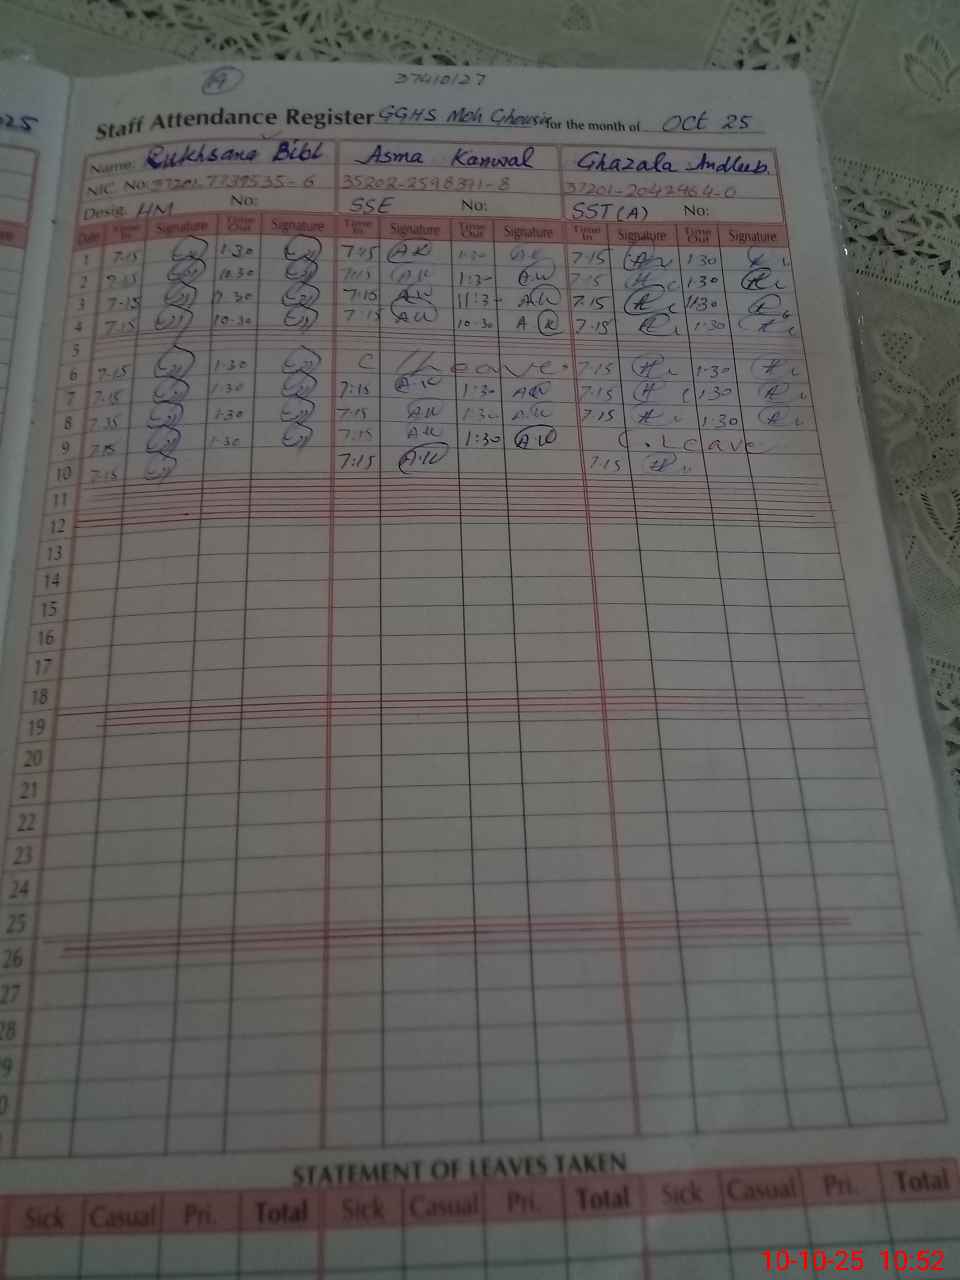 19
37410127
025
Staff Attendance Register GGHS Moh Ghousia for the month of Oct 25
Name: Rukhsana Bibi Asma Kanwal Ghazala Andleeb
NIC. No: 35202-2598391-8 37201-2042964-0
Desig. HM No: SSE No: SST (A) No:
Date Time In Signature Time Out Signature Time In Signature Time Out Signature Time In Signature Time Out Signature
1 7:15 1:30 7:15 AK 1:30 AK 7:15 1:30
2 7:15 10:30 7:15 AK 1:30 AK 7:15 1:30
3 7-15 7:15 AK 11:3 AK 7:15 1:30
4 7:15 10-30 7:15 AK 10-30 AK 7-15 1-30
5
6 7-15 1-30 C Leave 7-15 1-30
7 7-15 1:30 7:15 AK 1:30 AK 7-15 1:30
8 1:30 7:15 AK 1:30 AK 7:15 1:30
9 7:15 1:30 7:15 AK 1:30 AK C. Leave
10 7-15 7:15 AK 7-15
11
12
13
14
15
16
17
18
19
20
21
22
23
24
25
26
27
28
9
0
STATEMENT OF LEAVES TAKEN
Sick Casual Pri. Total Sick Casual Pri. Total Sick Casual Pri. Total
10-10-25 10:52